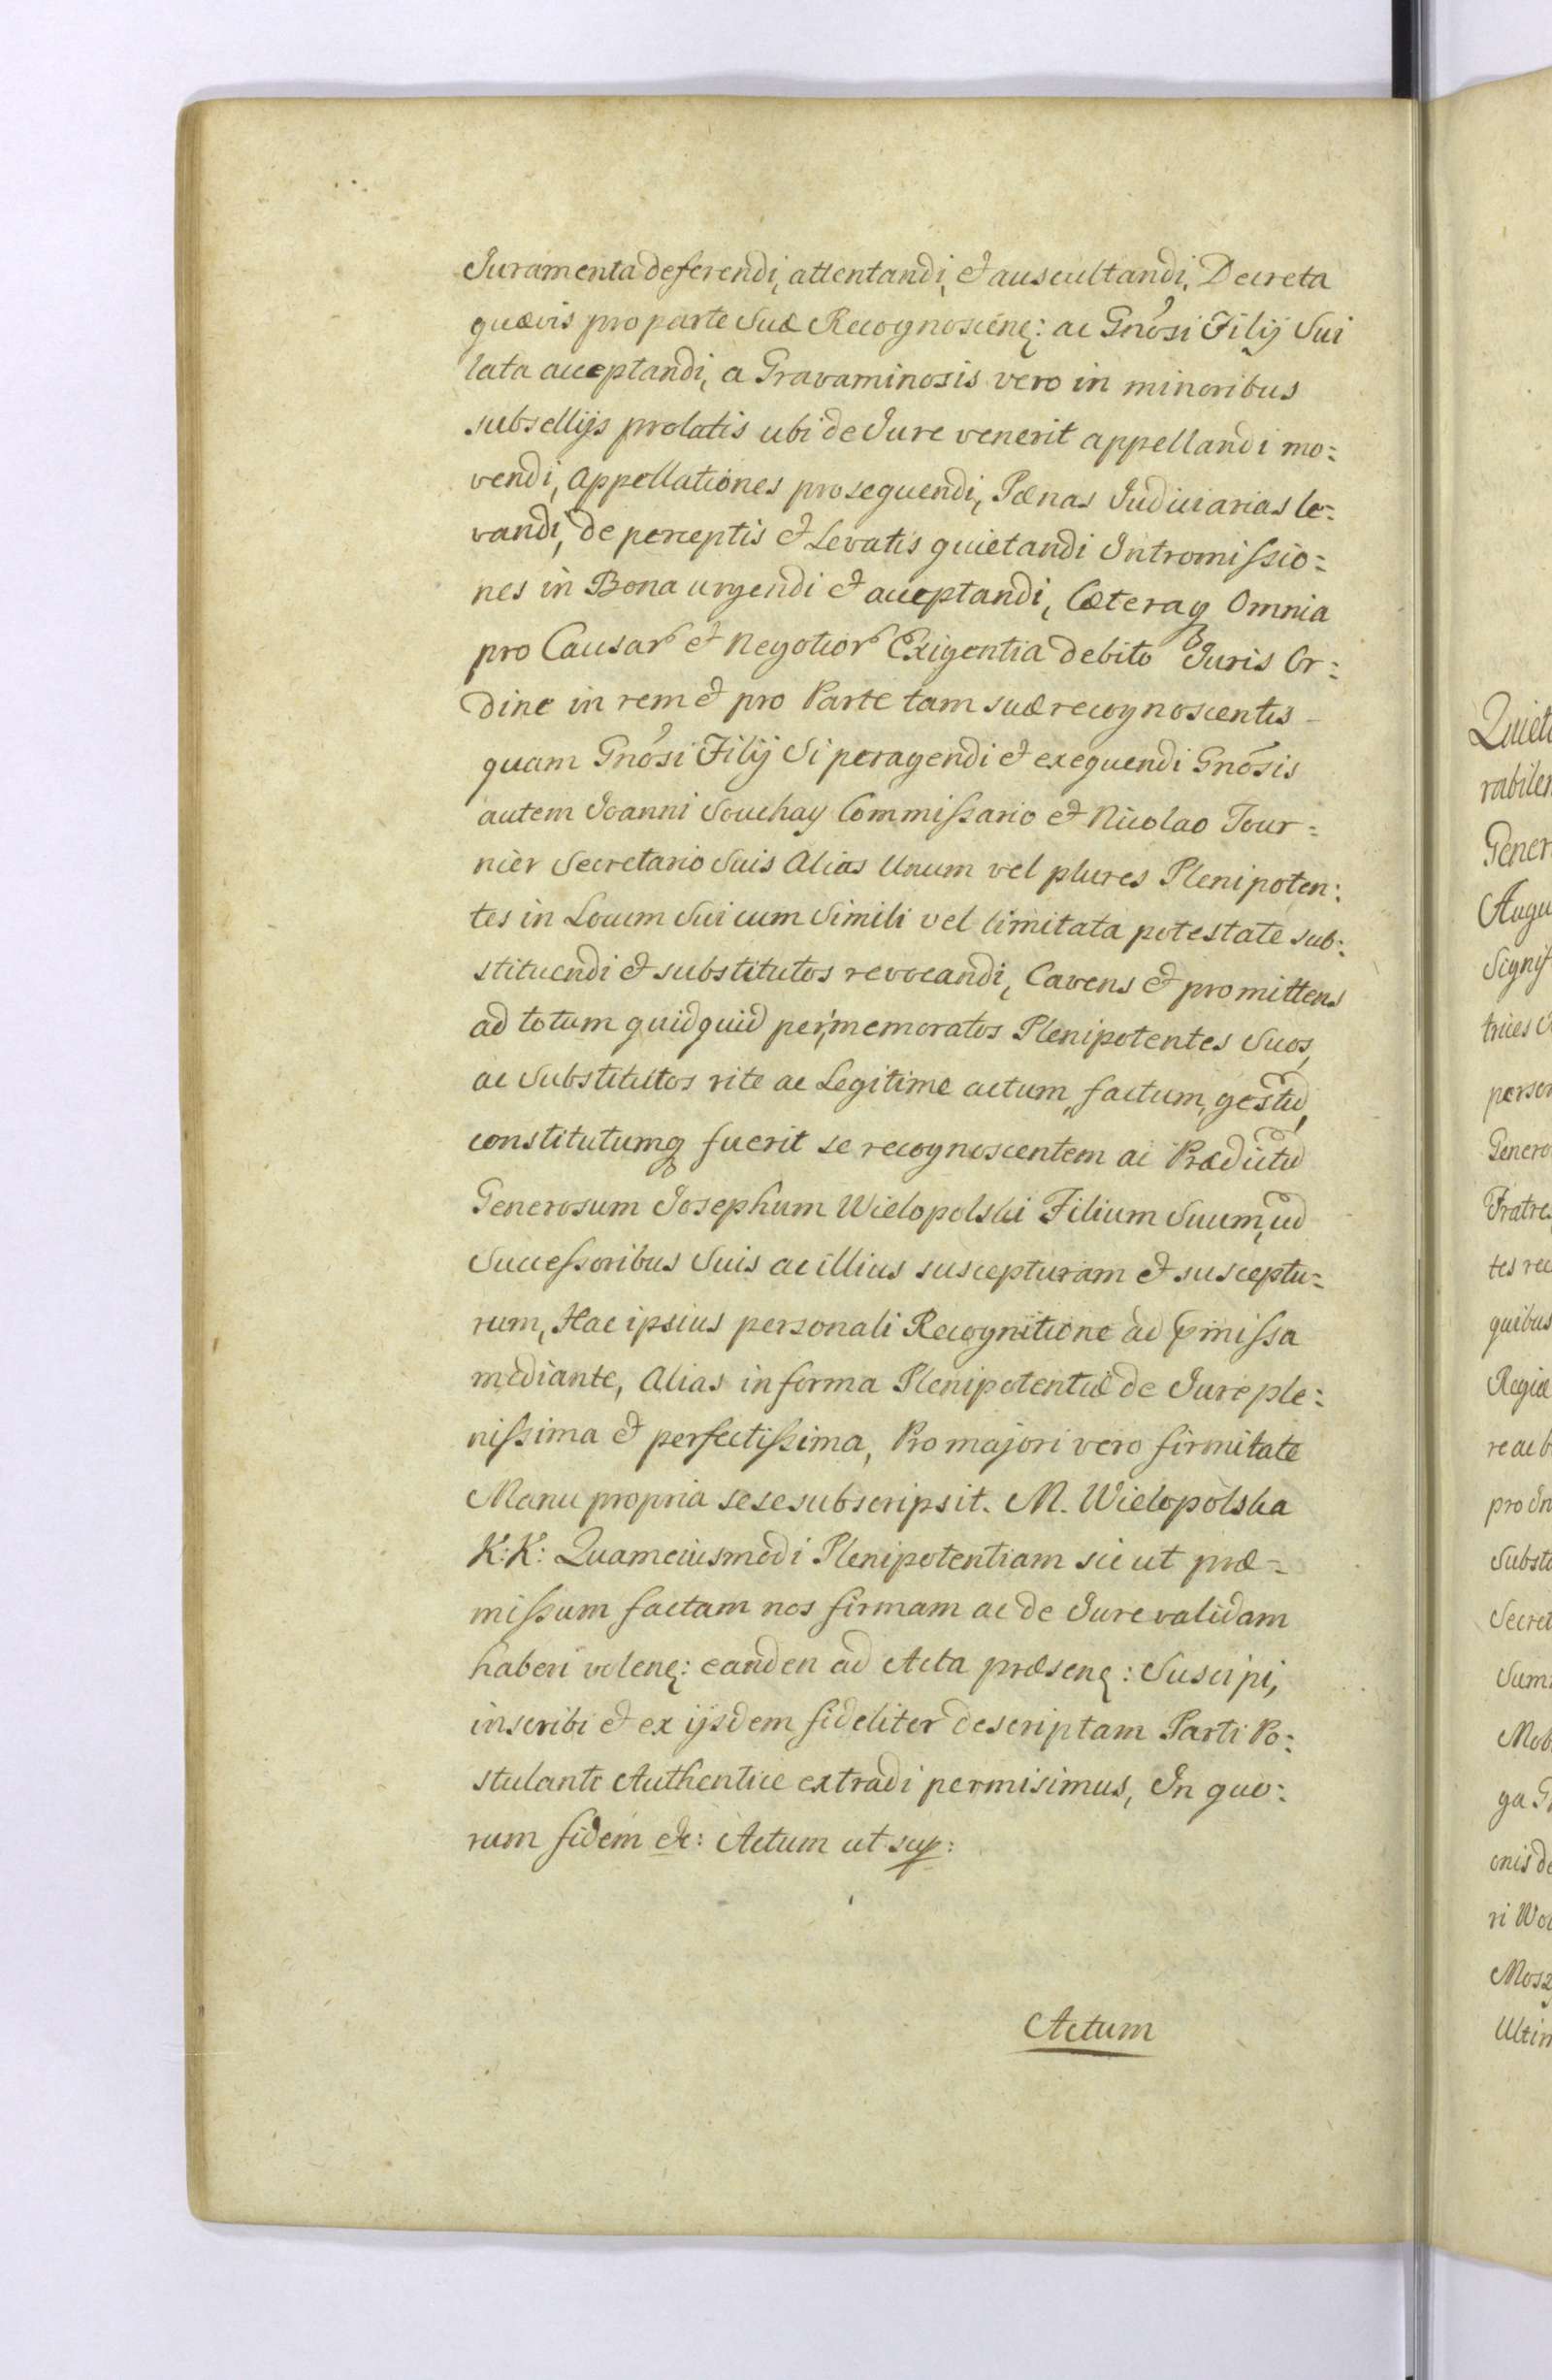 Juramenta deferendi, attentandi, et auscultandi, Decreta
quævis pro parte Suæ Recognoscenē: ac Gnōsi Filij Sui
lata acceptandi, a Gravaminosis vero in minoribus
subsellijs prolatis ubi de Jure venerit appellandi mo:
vendi, Appellationes prosequendi, Pænas Judiciarias le:
vandi, de perceptis et Levatis quietandi Intromissio:
nes in Bona urgendi et acceptandi, Cæteraq Omnia
pro Causar et Negotior Exigentia debito Juris Or:
dine in rem et pro Parte tam suæ recognoscentis -
quam Gnōsi Filij Si peragendi et exequendi Gnōsis
autem Joanni Souchay Commissario et Nicolao Tour:
nier Secretario Suis Alias Unum vel plures Plenipoten:
tes in Locum Sui cum Simili vel limitata potestate sub:
stituendi et substitutos revocandi, Cavens et promittens
ad totum quidquid per memoratos Plenipotentes Suos,
ac Substitutos rite ac Legitime actum, factum, gestū,
constitutumq fuerit se recognoscentem ac Prædictū
Generosum Josephum Wielopolski Filium Suum, cū
Successoribus Suis ac illius suscepturam et susceptu:
rum, Hac ipsius personali Recognitione ad pmissa
mediante, Alias in forma Plenipotentiæ de Jure ple:
nissima et perfectissima, Pro majori vero firmitate
Manu propria sese subscripsit. M. Wielopolska
K: K: Quam eiusmodi Plenipotentiam sic ut præ-
missum factam nos firmam ac de Jure validam
haberi volenē: eanden ad Acta præsenē: Suscipi,
inscribi et ex ijsdem fideliter descriptam Parti Po:
stulante Authentice extradi permisimus, In quo:
rum fidem etc: Actum ut sup:
Actum
Quiet
rabile
Gener
Augu
Signif
trices
person
Genero
Fratre
tes rec
quibus
Regiæ
re ac b
pro In
Substi
Secret
Sum
Mob
ga G
onis de
ri Wo
Mosz
Ultim